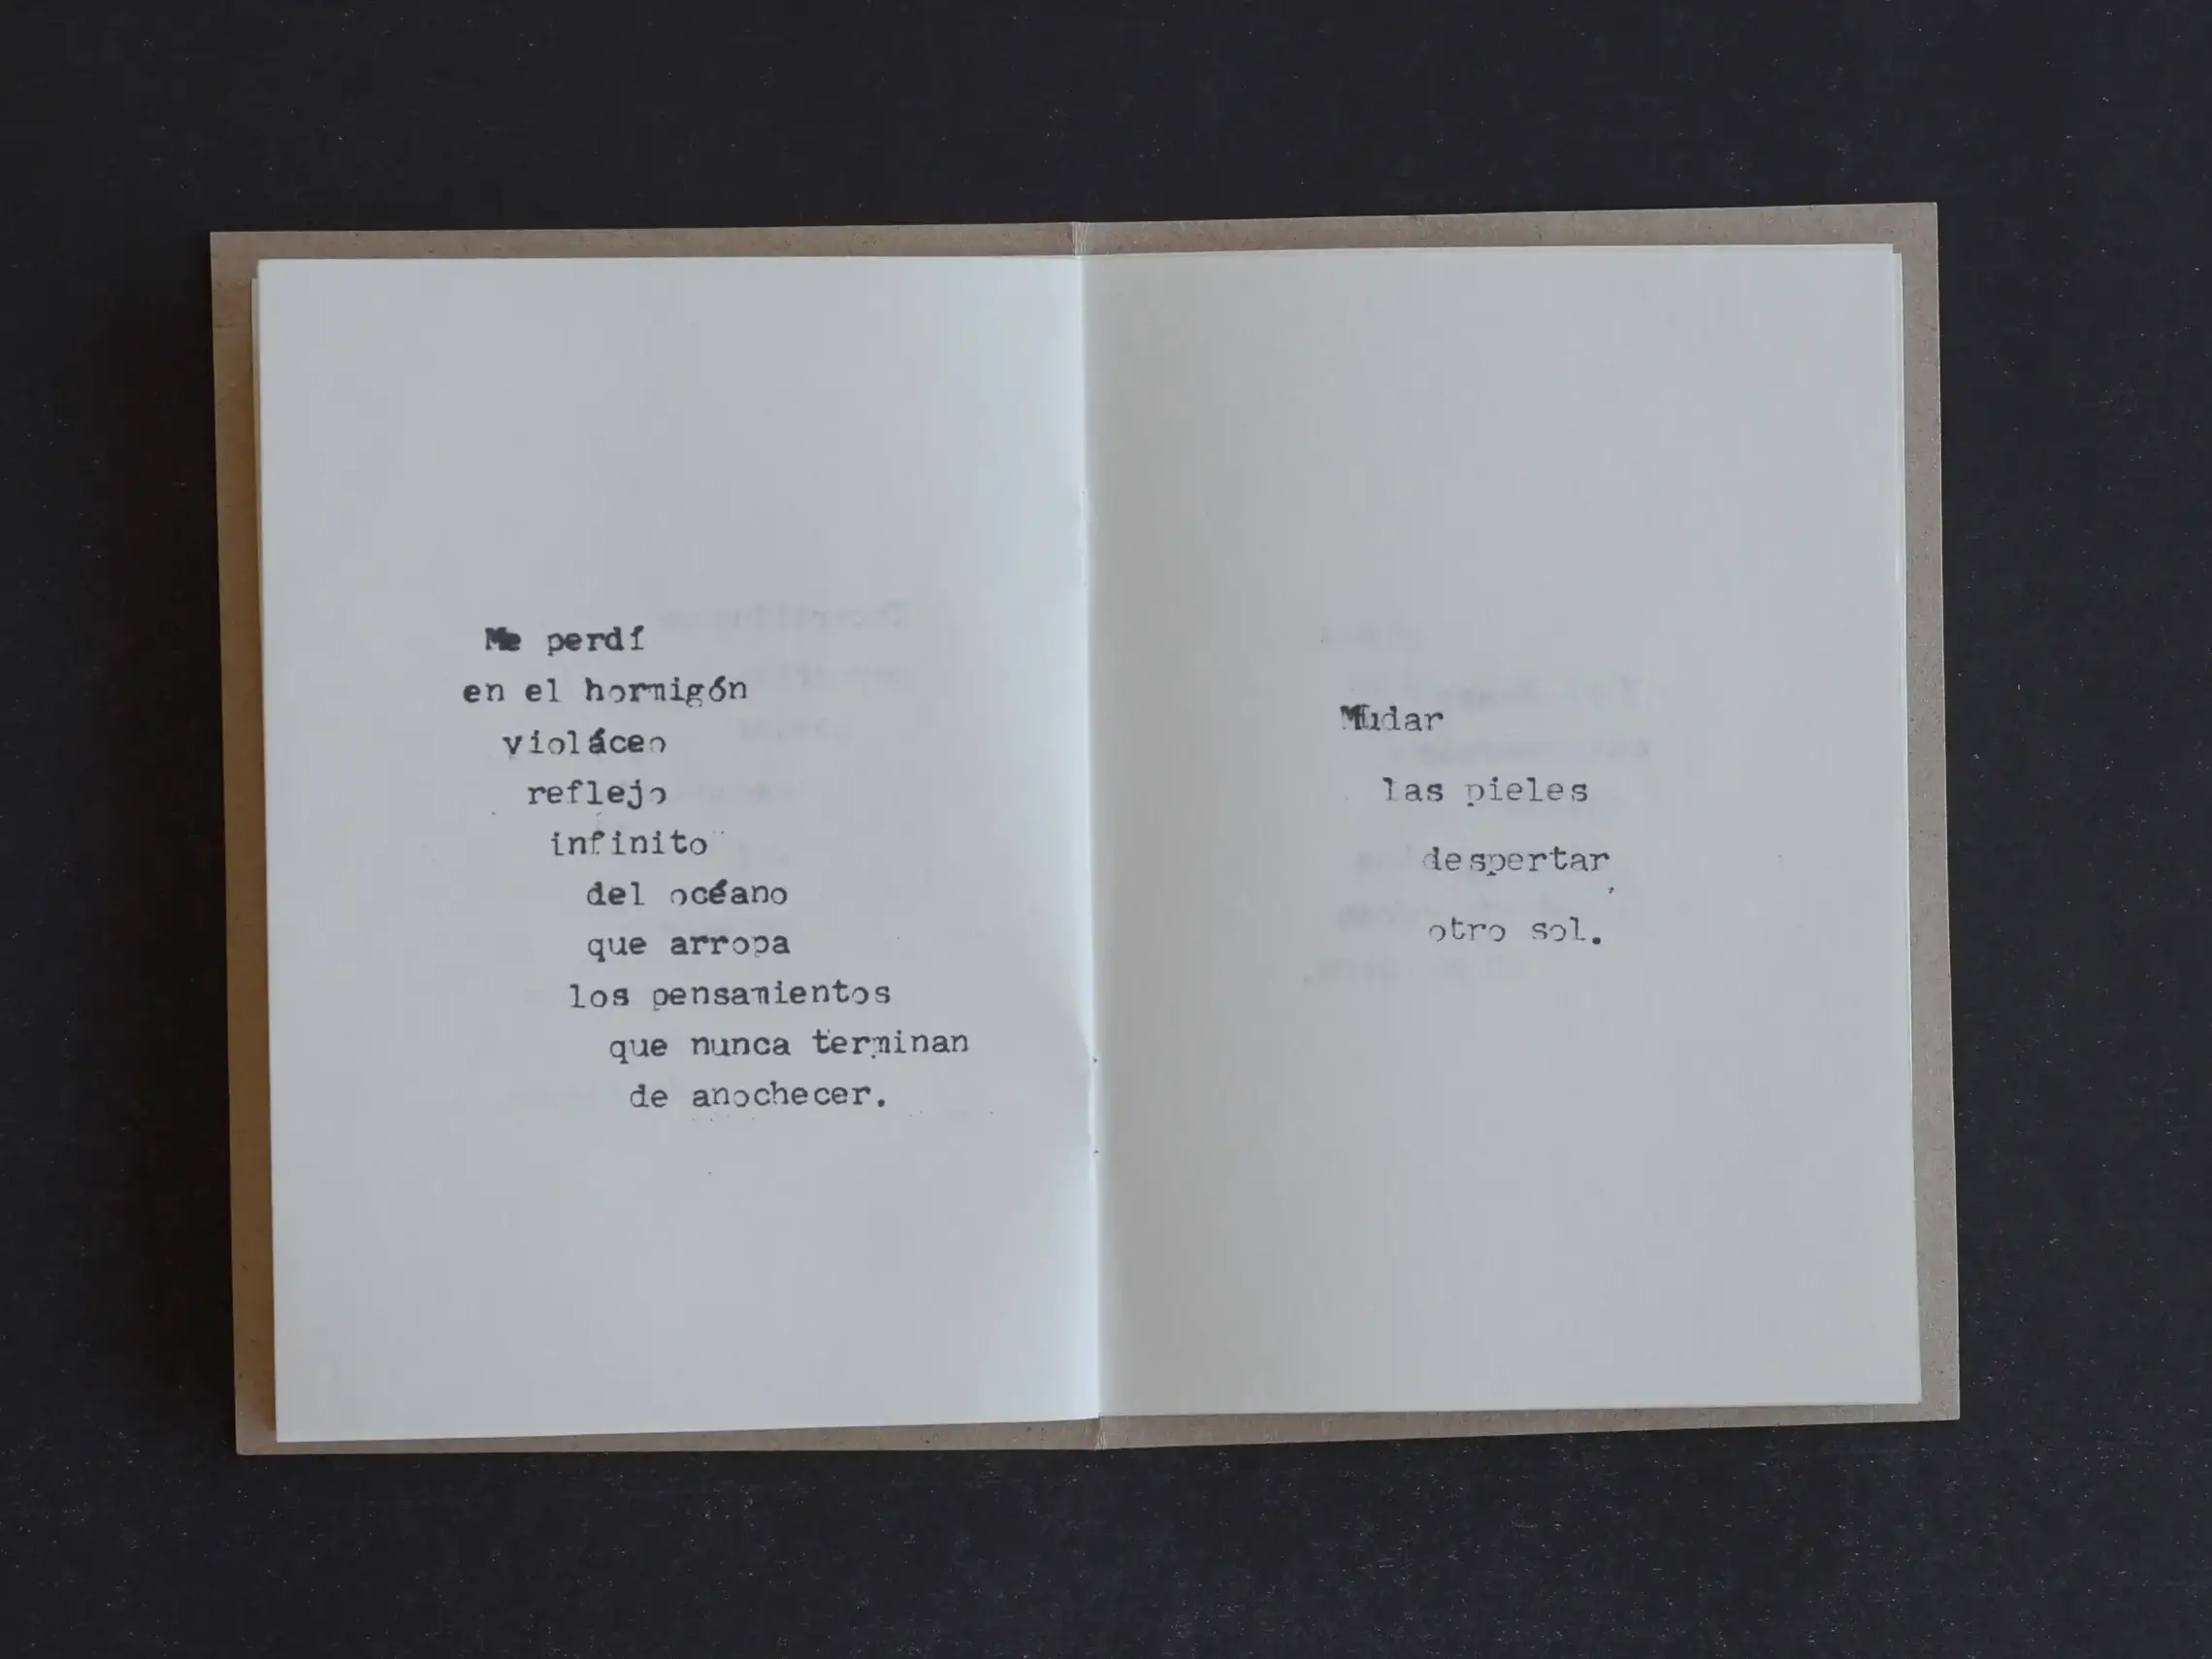 Me perdí
en el hormigón
violáceo
reflejo
infinito
del océano
que arropa
los pensamientos
que nunca terminan
de anochecer.
Mudar
las pieles
despertar
otro sol.